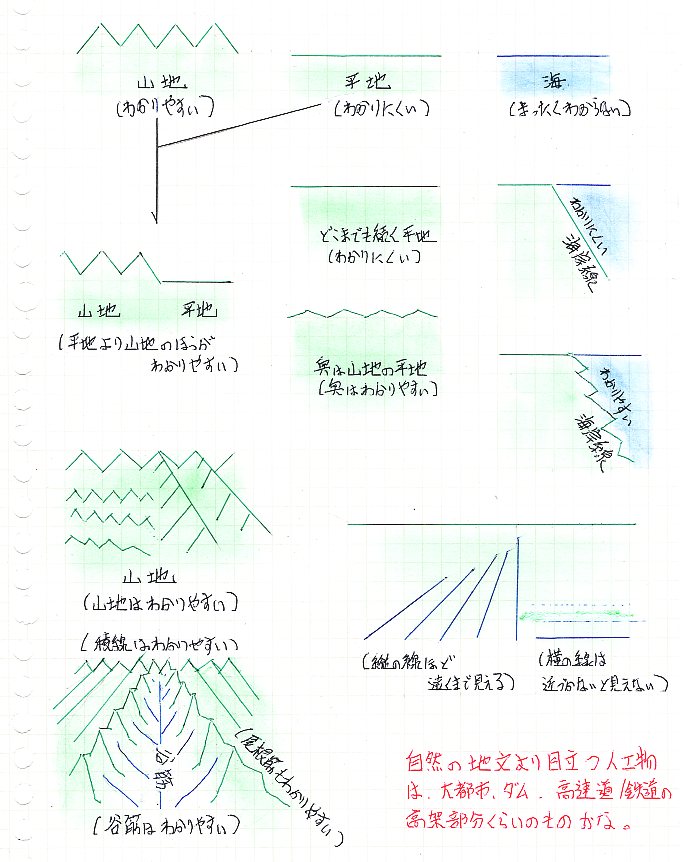 山地
(わかりやすい)
平地
(わかりにくい)
海
(まったくわからない)
どこまでも続く平地
(わかりにくい)
わかりにくい
海岸線
山地 平地
(平地より山地のほうが
わかりやすい)
奥は山地の平地
(奥はわかりやすい)
わかりやすい
海岸線
山地
(山地はわかりやすい)
(稜線はわかりやすい)
谷筋
(谷筋はわかりやすい)
(尾根筋もわかりやすい)
(縦の線ほど
遠くまで見える)
(横の線は
近づかないと見えない)
自然の地文より目立つ人工物
は、大都市、ダム、高速道/鉄道の
高架部分くらいのものかな。